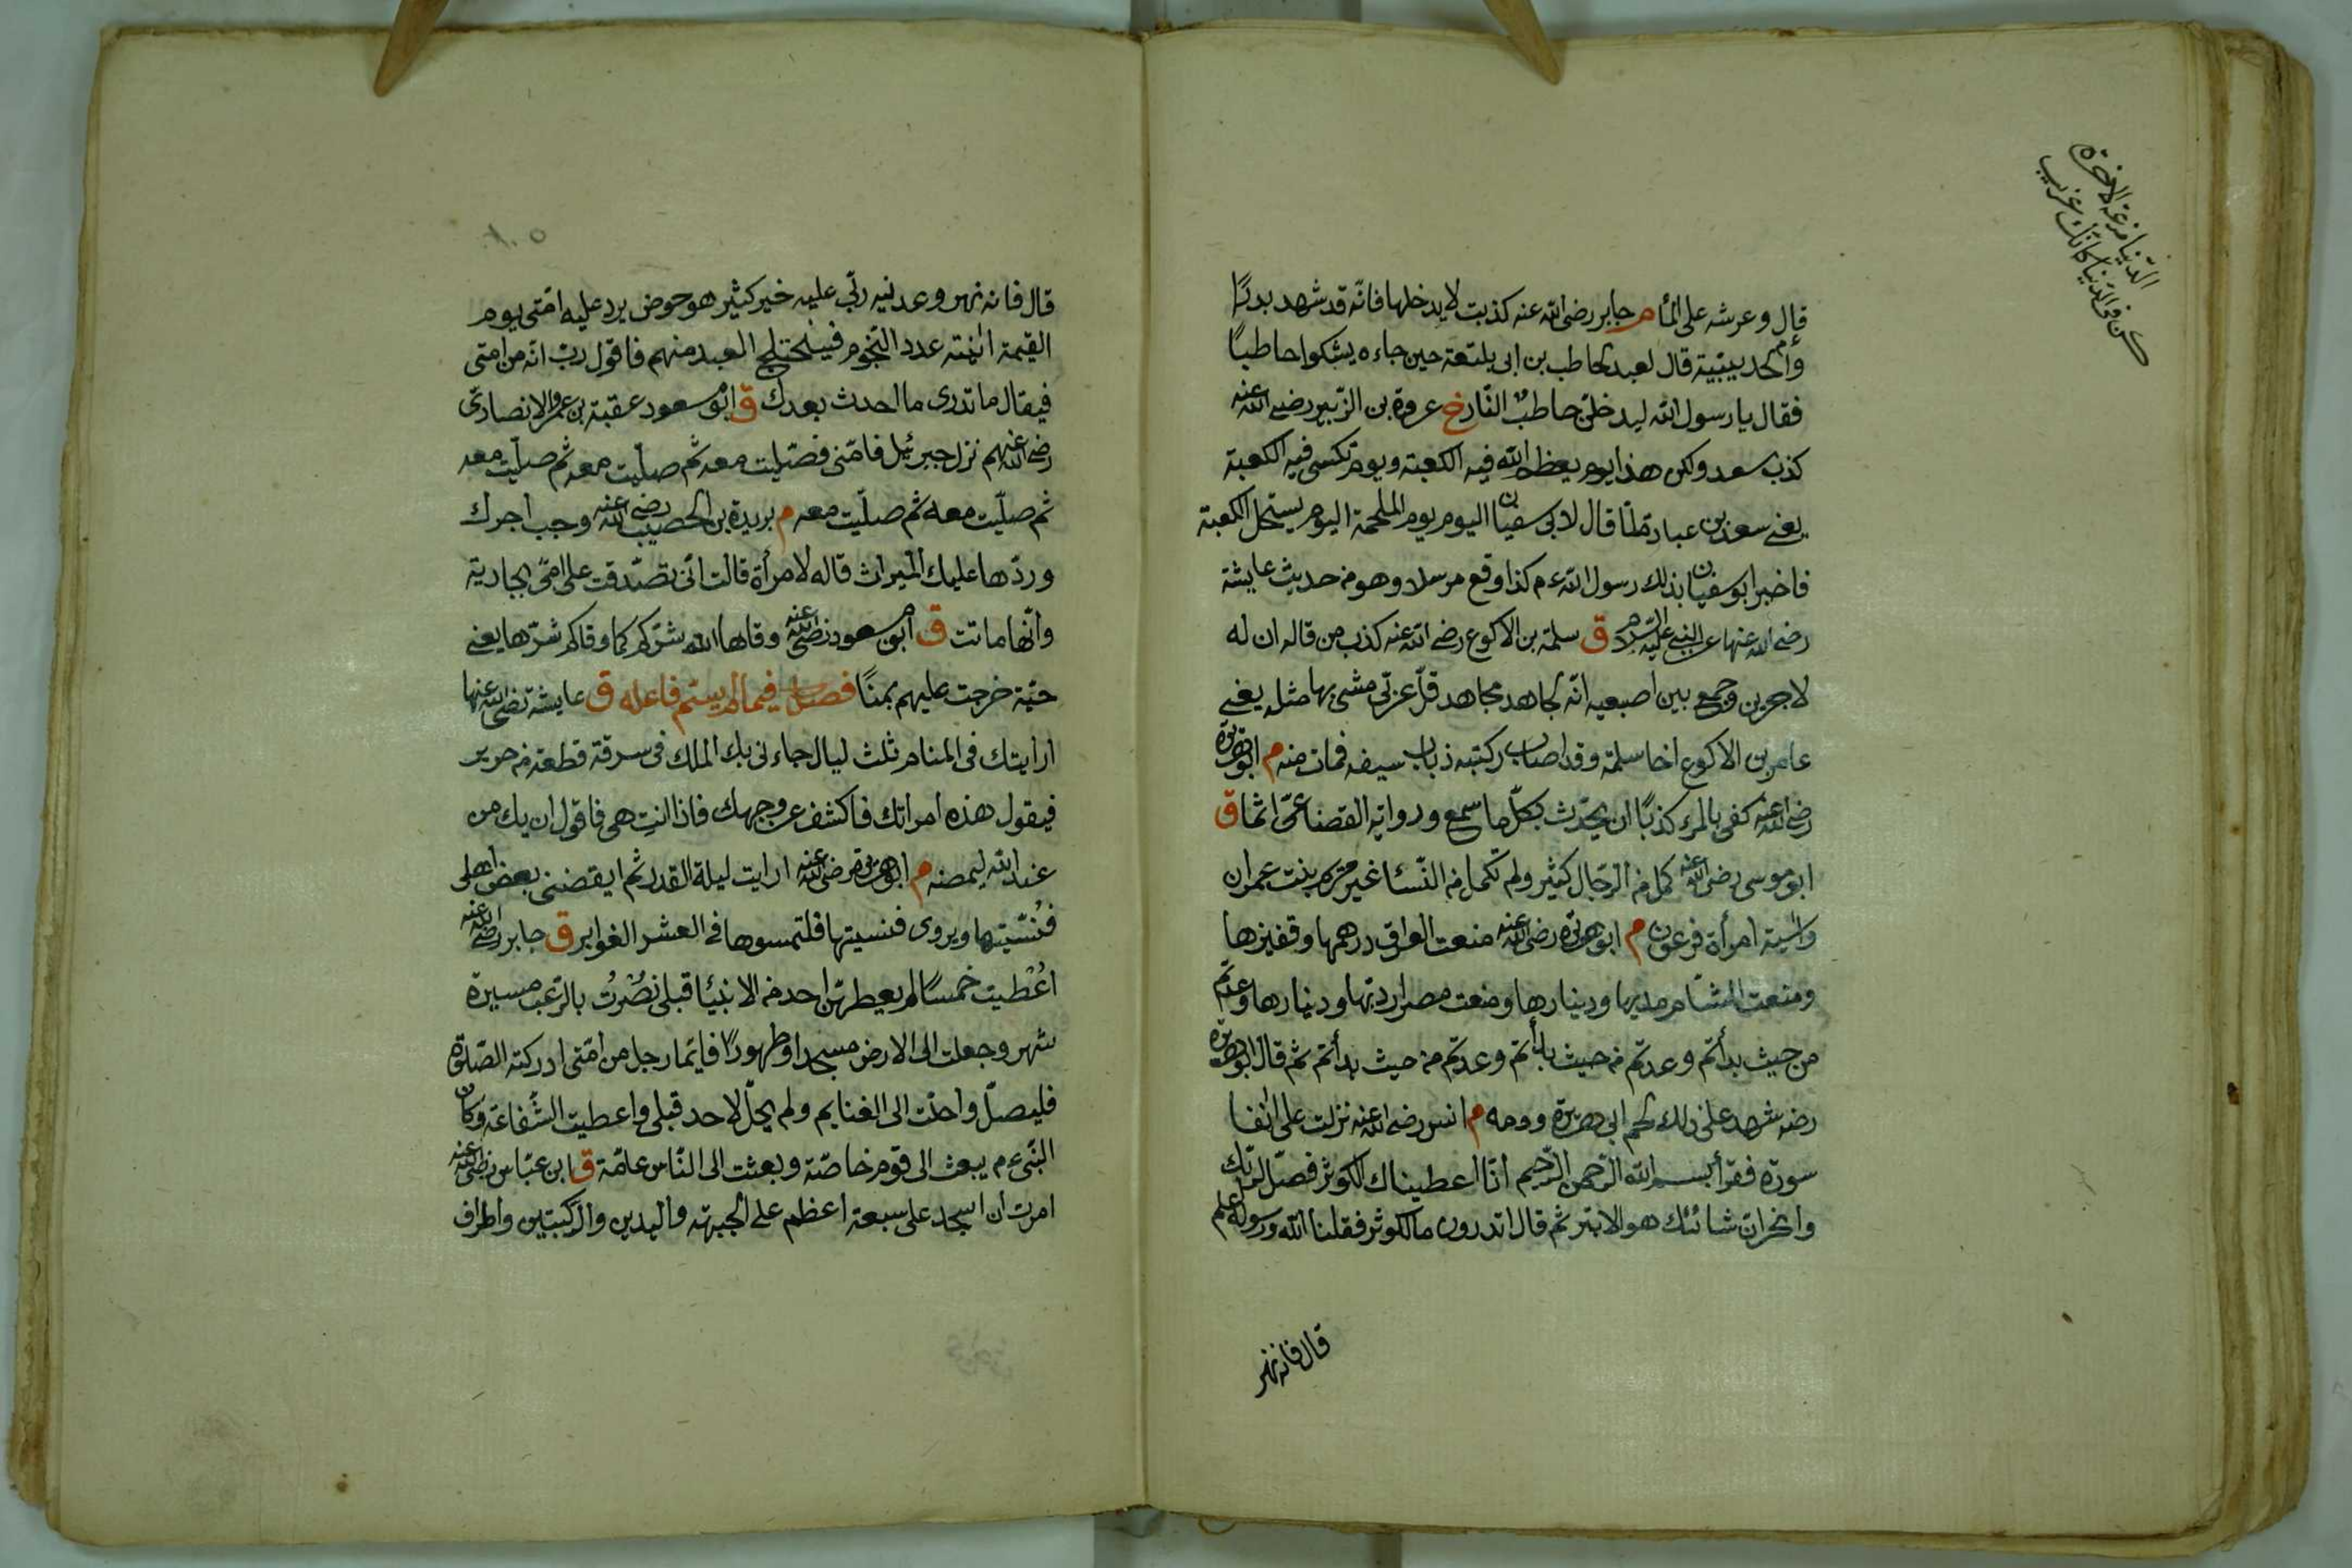 الدنيا مزرعة الاخرة
كن فى الدنيا كانك غريب
قال وعرشه على المأ م جابر رضى الله عنه كذبت لا يدخلها فانه قد شهد بدرًا
والحديبيّية قال لعبد لحاطب بن ابى بلتعة حين جاءه يشكوا حاطبًا
فقال يا رسول الله ليدخلنّ حاطبٌ النّار خ عروة بن الزّبير رضى الله عنه
كذب سعد ولكن هذا يوم يعظم الله فيه الكعبة ويوم تكسى فيه الكعبة
يعنى سعد بن عبادة لمّا قال لابى سفيان اليوم يوم الملحمة اليوم يستحل الكعبة
فاخبر ابو سفيان بذلك رسول الله ءم كذا وقع مرسلا وهو من حديث عايشة
رضى الله عنها عن النبى عليه السلام ق سلمة بن الاكوع رضى الله عنه كذب من قاله ان له
لاجرين وجمع بين اصبعيه انّه لجاهد مجاهد قلّ عربّى مشى بها مثله يعنى
عامر بن الاكوع اخا سلمة وقد اصاب ركبته ذباب سيفه فمات منه م ابو هريرة
رضى الله عنه كفى بالمرء كذبًا ان يحدّث بكلّ ما سمع ورواية القضاعىّ اثما ق
ابو موسى رضى الله عنه كمل من الرّجال كثير ولم تكمل من النّسا غير مريم بنت عمران
واسية امرأة فرعون م ابو هريرة رضى الله عنه منعت العراق درهمها وقفيزها
ومنعت الشام مديها ودينارها ومنعت مصر اردبّها ودينارها وعدتم
من حيث بدأتم وعدتم من حيث بدأتم وعدتم من حيث بدأتم ثم قال ابو هريرة
رضه شهد على ذلك لحم ابى هريرة ودمه م انس رضى الله عنه نزلت على انفا
سورة فقرأ بسم الله الرّحمن الرّحيم انّا اعطيناك الكوثر فصلّ لربّك
وانحر انّ شانئك هو الابتر ثم قال اتدرون ما الكوثر فقلنا الله ورسوله اعلم
قال فانه نهر
قال فانه نهر وعدنيه ربّى عليه خير كثير هو حوض يرد عليه امّتى يوم
القيمة انيته عدد النّجوم فيختلج العبد منهم فاقول ربّ انّه من امتى
فيقال ما تدرى ما احدث بعدك ق ابو مسعود عقبة بن عمرو الانصارىّ
رضى الله عنهم نزل جبرئيل فامّنى فصلّيت معه ثم صلّيت معه ثم صلّيت معه
ثم صلّيت معه ثم صلّيت معه م بريدة بن الحصيب رضى الله عنه وجب اجرك
وردّها عليك الميراث قاله لامرأة قالت انّى تصدّقت على امّى بجارية
وانّها ماتت ق ابو مسعود رضى الله عنه وقاها الله شرّكم كما وقاكم شرّها يعنى
حيّة خرجت عليهم بمنًا فصل فيما لم يسمّ فاعله ق عايشة رضى الله عنها
ارايتك فى المنام ثلث ليال جاءنى بك الملك فى سرقة قطعة من حرير
فيقول هذه امراتك فاكشف عن وجهك فاذا انتِ هى فاقول ان يك من
عند الله يمضه م ابو هريرة رضى الله عنه ارايت ليلة القدر ثم ايقضنى بعض اهلى
فنُسّيتها ويروى فنسيتها فلتمسوها فى العشر الغوابر ق جابر رضى الله عنه
اعُطيت خمسًا لم يعطهنّ احد من الانبئا قبلى نصُرتُ بالرّعب مسيرة
شهر وجعلت الى الارض مسجدا وطهورًا فايّما رجل من امّتى ادركته الصّلوة
فليصلّ واحلّت الى الغنايم ولم يحلّ لاحد قبلى واعطيت الشّفاعة وكان
النّبى ءم يبعث الى قوم خاصّة وبعثت الى النّاس عامّة ق ابن عبّاس رضى الله عنه
امرت ان اسجد على سبعة اعظم على الجبهة واليدين والركبتين واطراف